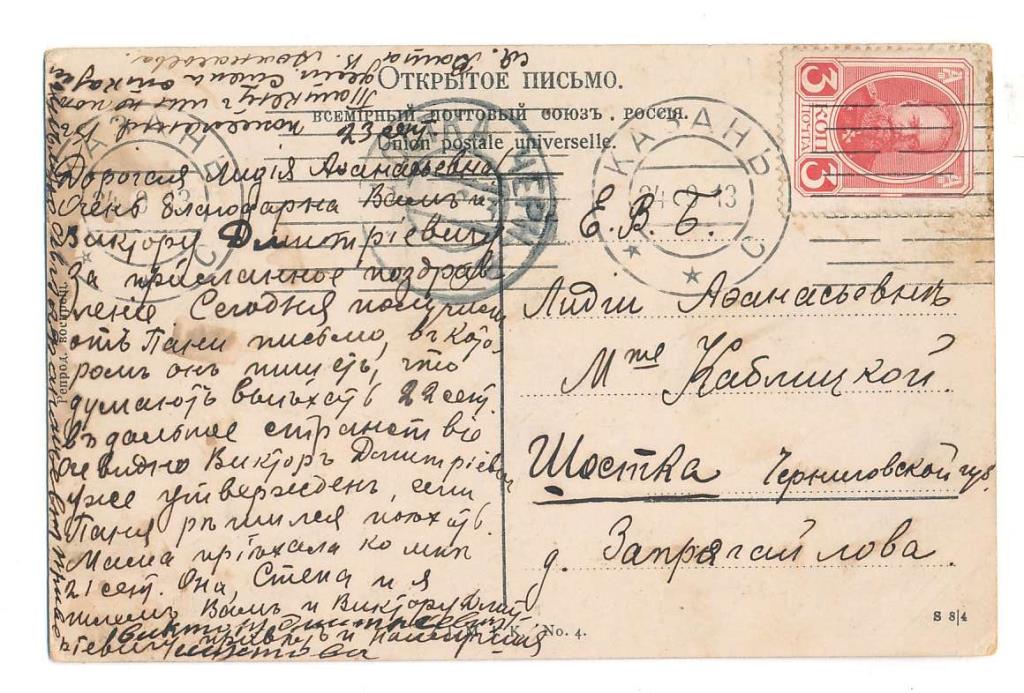 ОТКРЫТОЕ ПИСЬМО.
ВСЕМІРНЫЙ ПОЧТОВЫЙ СОЮЗЪ. РОССІЯ.
Union postale universelle.
3 КОП
ПОЧТА
3
КАЗАНЬ
24 9 13
23 сент.
Дорогая Лидія Аѳанасьевна
Очень благодарна Вамъ и
Виктору Дмитріевичу
За присланное поздрав
леніе Сегодня получили
отъ Пани письмо, въ кото
ромъ онъ пишетъ, что
думаютъ выѣхать 22 сент.
въ дальнее странствіе
Очевидно Викторъ Дмитріевич
уже утвержденъ, если
Паня рѣшился поѣхать.
Мама пріѣхала ко мнѣ
21 сент. Она, Стена и я
шлемъ Вамъ и Виктору Дмит
ріевичу привѣтъ и
Е. В. Б.
Лидіи Аѳанасьевнѣ
Mme Каблицкой.
Шостка Черниговской губ.
д. Запрягайлова.
No. 4.
S 8/4